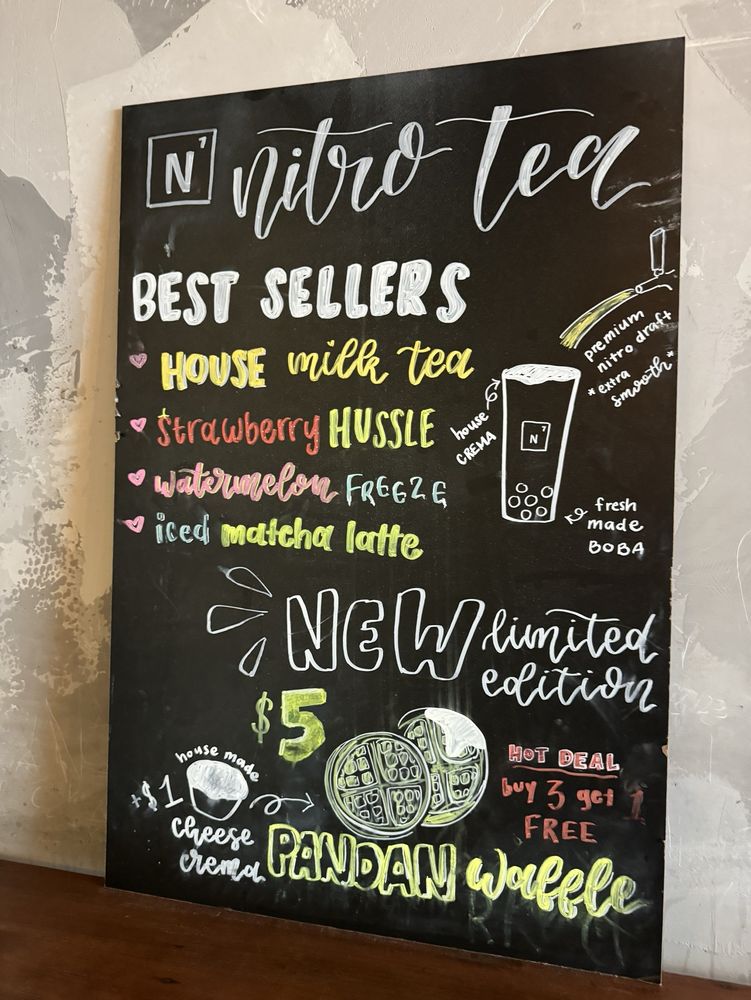 N7 nitro tea
BEST SELLERS
HOUSE milk tea
strawberry HUSSLE
watermelon FREEZE
iced matcha latte
premium
nitro draft
*extra
smooth*
house
CREMA
N7
fresh
made
BOBA
NEW limited
edition
$5
house made
+$1
cheese
crema
PANDAN waffle
HOT DEAL
buy 3 get 1
FREE